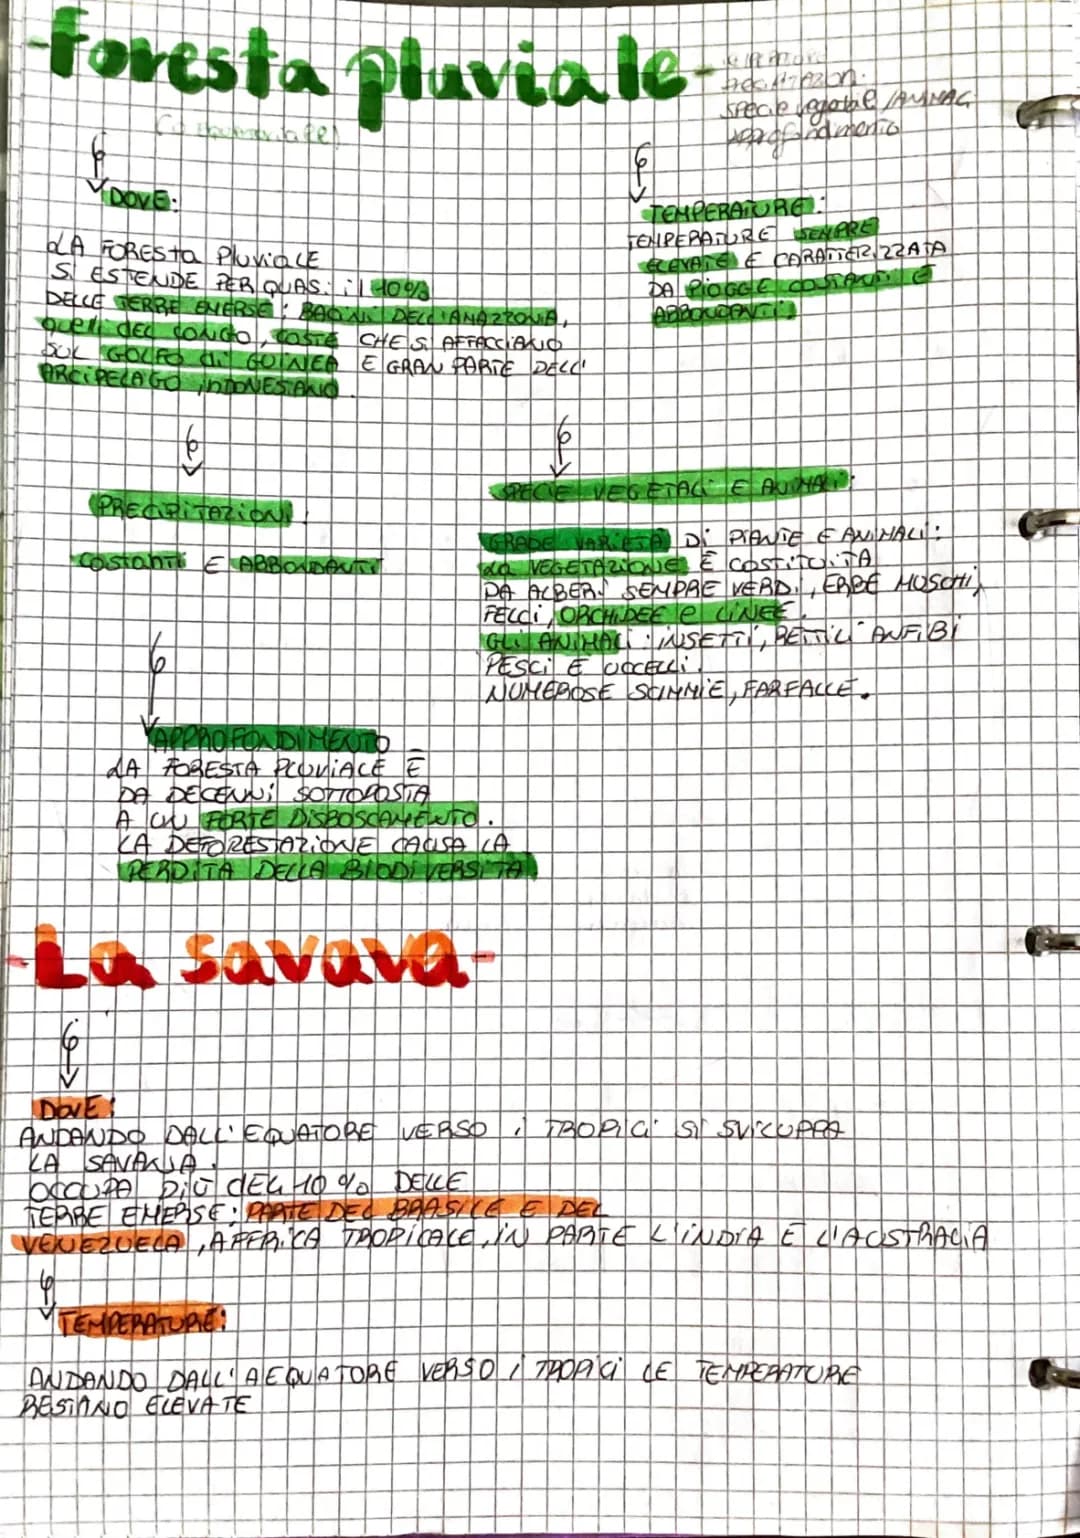 -foresta pluviale-
specie vegetale /ANIMAL
approfondimento
DOVE:
LA FORESTA PLUVIALE
SI ESTENDE PER QUASI il 10%
DELLE TERRE EMERSE: BACINI DELL'AMAZZONIA,
quelli del CONGO, COSTE CHE SI AFFACCIANO
SUL GOLFO di GUINEA E GRAN PARTE DELL'
ARCIPELAGO INDONESIANO.
TEMPERATURE:
TEMPERATURE SEMPRE
ELEVATE E CARATTERIZZATA
DA PIOGGE COSTANTI E
ABBONDANTI
PRECIPITAZIONI:
COSTANTI E ABBONDANTI
SPECIE VEGETALI E ANIMALI:
GRADE VARIETÀ DI PIANTE E ANIMALI:
LA VEGETAZIONE È COSTITUITA
DA ALBERI SEMPRE VERDI, ERBE MUSCHI,
FELCI, ORCHIDEE e LINEE.
GLI ANIMALI: INSETTI, RETTILI ANFIBI
PESCI E UCCELLI.
NUMEROSE SCIMMIE, FARFALLE.
APPROFONDIMENTO
LA FORESTA PLUVIALE È
DA DECENNI SOTTOPOSTA
A UN FORTE DISBOSCAMENTO.
LA DEFORESTAZIONE CAUSA LA
PERDITA DELLA BIODIVERSITÀ
-La savava-
DOVE:
ANDANDO DALL'EQUATORE VERSO i TROPICI SI SVILUPPA
LA SAVANA.
OCCUPA PIÙ DEL 10% DELLE
TERRE EMERSE: PARTE DEL BRASILE E DEL
VENEZUELA, AFFRICA TROPICALE, IN PARTE L'INDIA E L'AUSTRALIA
TEMPERATURE:
ANDANDO DALL'AEQUATORE VERSO i TROPICI LE TEMPERATURE
RESTANO ELEVATE